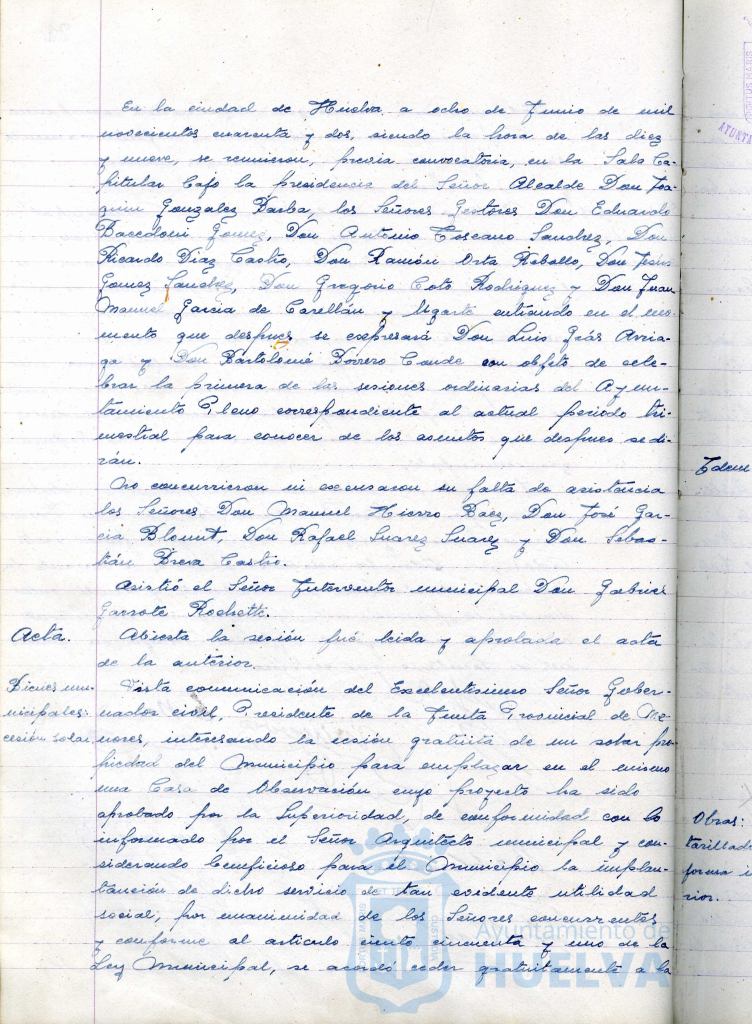 En la ciudad de Huelva a ocho de Junio de mil
novecientos cuarenta y dos, siendo la hora de las diez
y nueve, se reunieron, previa convocatoria, en la Sala Ca-
pitular bajo la presidencia del Señor Alcalde Don Joa-
quin Gonzalez Barba, los Señores Gestores Don Eduardo
Gomez, Don Antonio Toscano Sanchez, Don
Ricardo Diaz Castro, Don Ramón Orta Rebollo, Don Jesús
Gomez Sanchez, Don Gregorio Coto Rodriguez y Don Juan
Manuel Garcia de Castellán y Ugarte entrando en el mo-
mento que despues se expresará Don Luis Grás Arria-
ga y Don Bartolomé Borrero Conde con objeto de cele-
brar la primera de las sesiones ordinarias del Ayun-
tamiento Pleno correspondiente al actual periodo tri-
mestral para conocer de los asuntos que despues se di-
rán.
No concurrieron ni excusaron su falta de asistencia
los Señores Don Manuel Hierro Baez, Don José Gar-
cia Blount, Don Rafael Suarez Suarez y Don Sebas-
tián Breva Castro.
Asistió el Señor Interventor municipal Don Gabriel
Garrote Rochette.
Acta. Abierta la sesión fué leida y aprobada el acta
de la anterior.
Bienes mu-
nicipales:
cesión solar
Vista comunicación del Excelentisimo Señor Gober-
nador civil, Presidente de la Junta Provincial de Me-
nores, interesando la cesión gratuita de un solar pro-
piedad del Municipio para emplazar en el mismo
una Casa de Observación cuyo proyecto ha sido
aprobado por la Superioridad, de conformidad con lo
informado por el Señor Arquitecto municipal y con-
siderando beneficioso para el Municipio la implan-
tanción de dicho servicio de tan evidente utilidad
social, por unanimidad de los Señores concurrentes
y conforme al articulo ciento cincuenta y uno de la
Ley Municipal, se acordó ceder gratuitamente a la
Idem
Obras:
tarillado
forma i
rior.
Ayuntamiento de
HUELVA